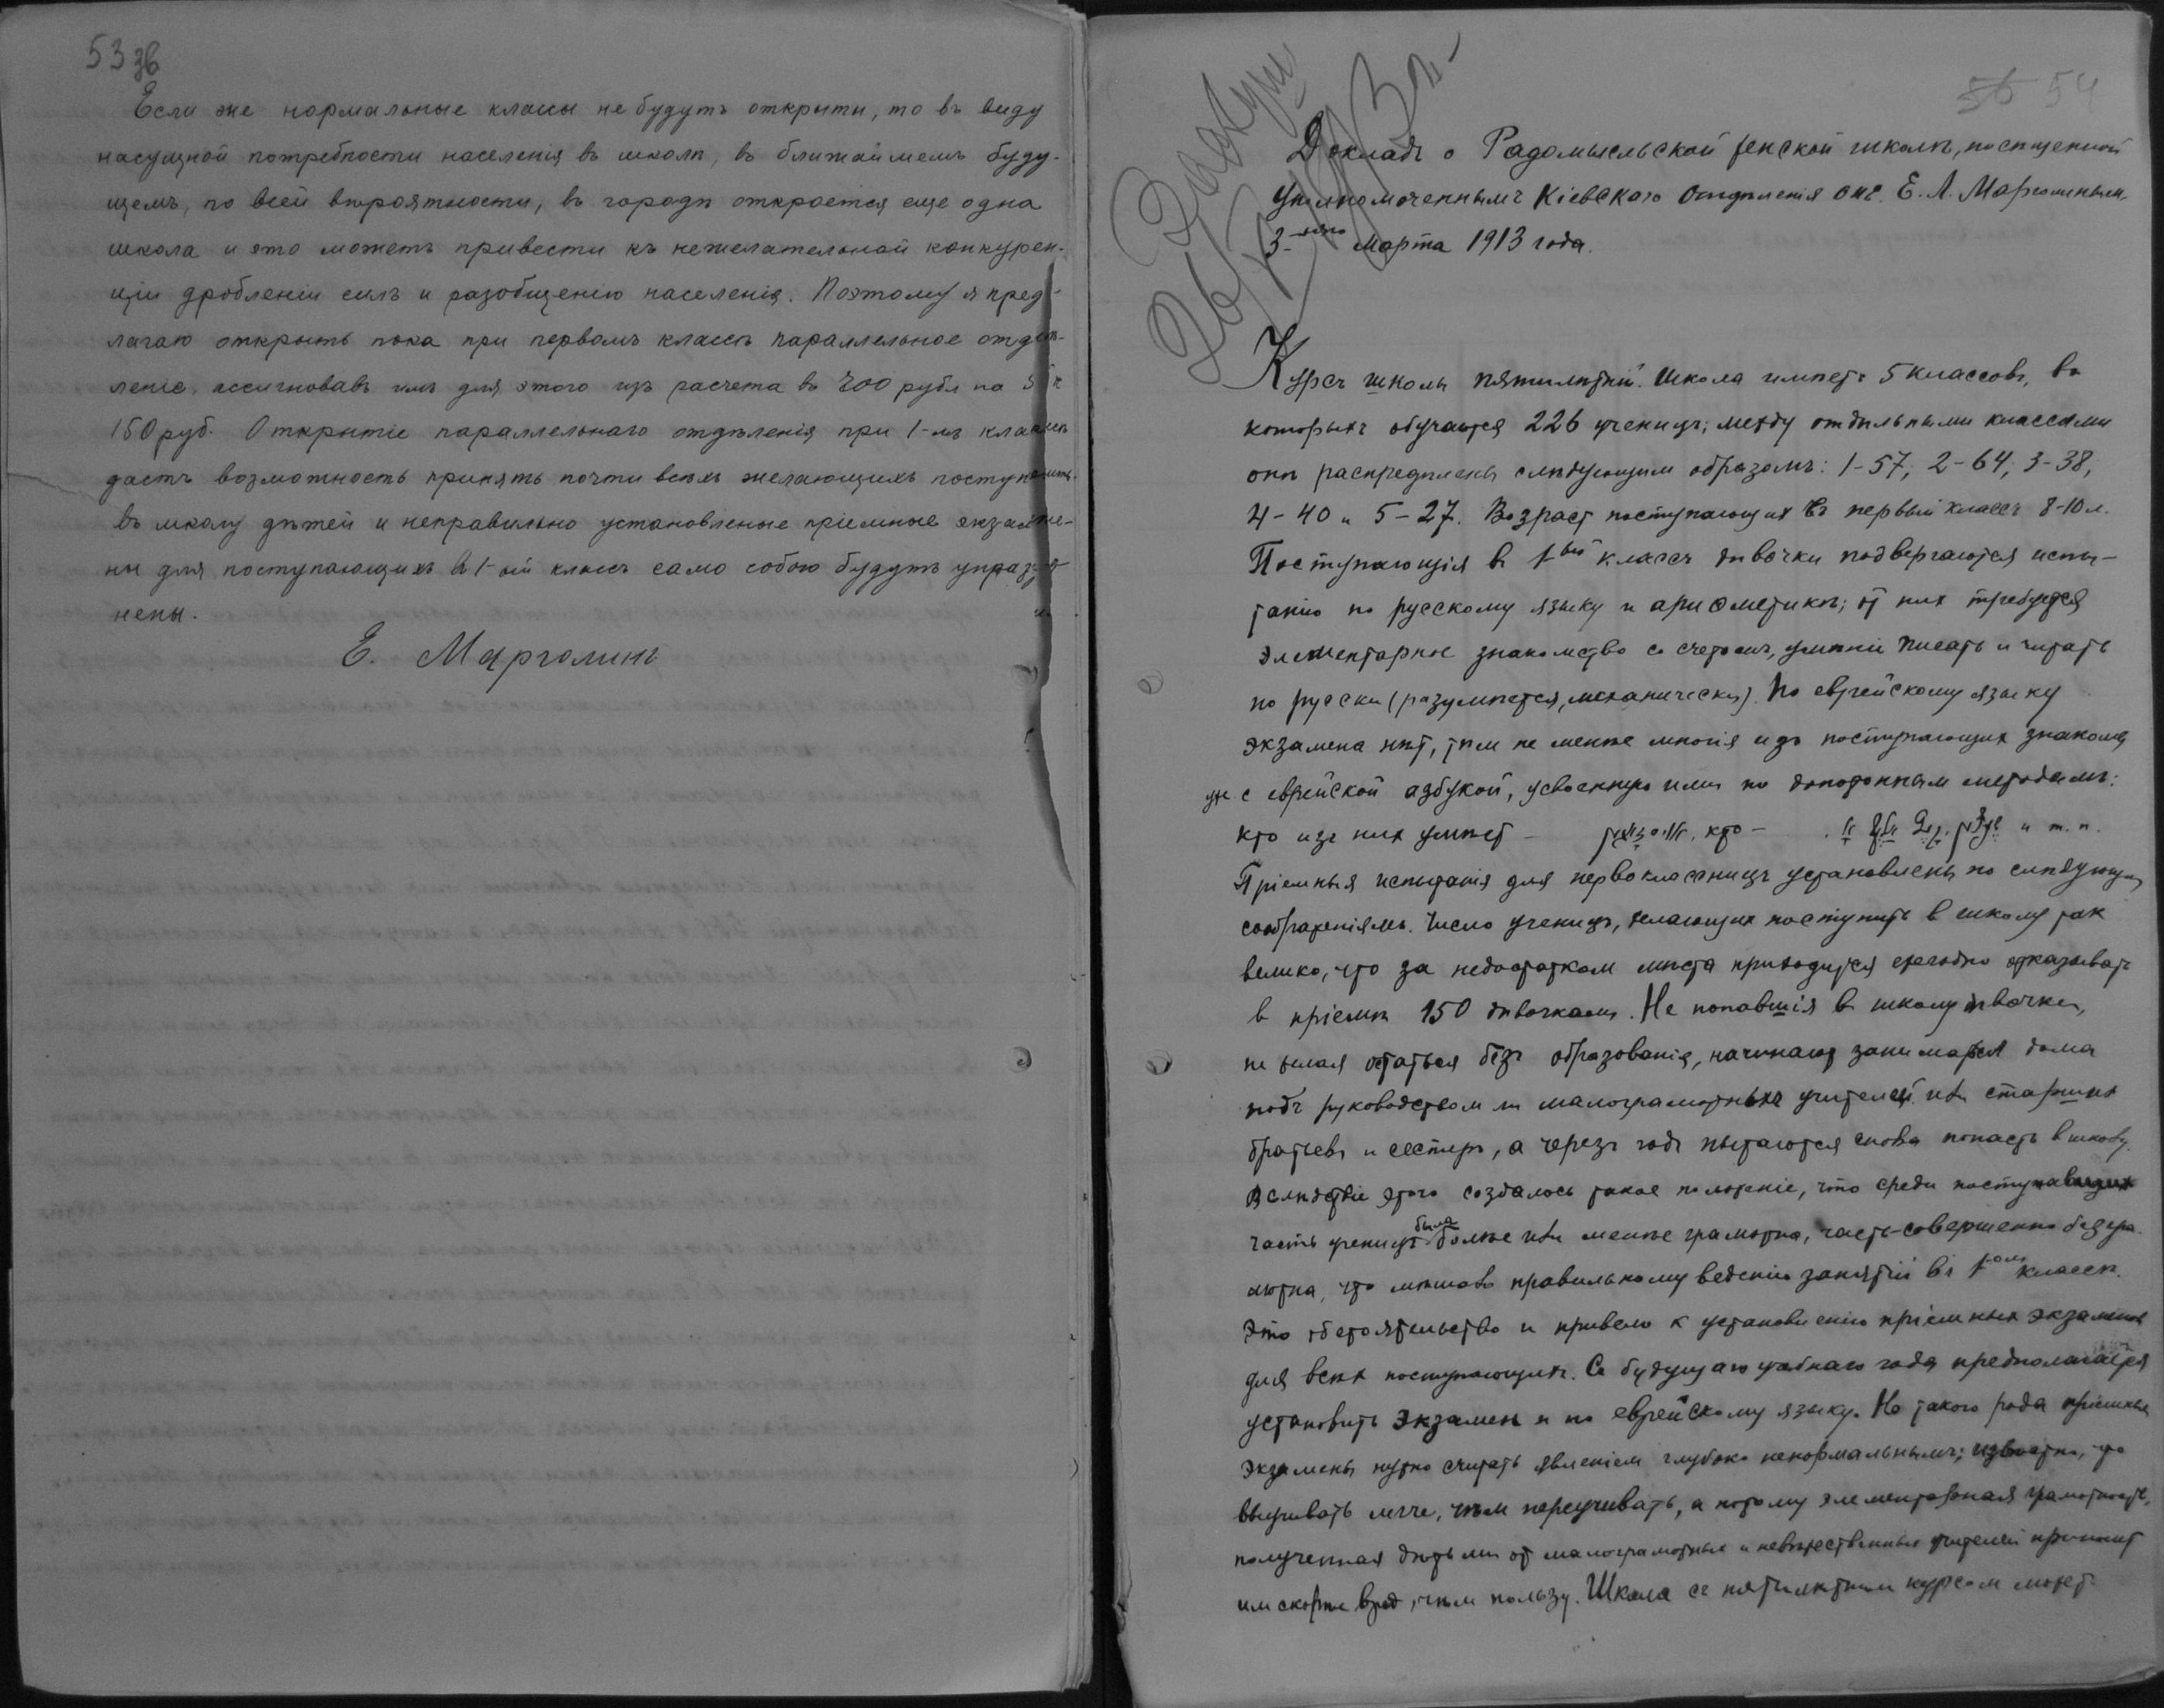 53 зв
Если же нормальные классы не будутъ открыты, то въ виду
насущной потребности населенія въ школѣ, въ ближайшемъ буду-
щемъ, по всей вѣроятности, въ городѣ откроется еще одна
школа и это можетъ привести къ нежелательной конкурен-
ціи дробленію силъ и разобщенію населенія. Поэтому я пред-
лагаю открыть пока при первомъ классѣ параллельное отдѣ-
леніе, ассигновавъ имъ для этого изъ расчета въ 200 рубл на
150 руб. Открытіе параллельнаго отдѣленія при 1-мъ классѣ
дастъ возможность принять почти всѣхъ желающихъ поступить
въ школу дѣтей и неправильно установленые пріемные экзаме-
ны для поступающихъ въ 1-ый классъ само собою будутъ упразд-
нены.
Е. Марголинъ
56 54
Докладъ о Радомысльской женской школѣ, посѣщенной
уполномоченнымъ Кіевскаго Отдѣленія ОПЕ. Е. Л. Марголинымъ
3-яго Марта 1913 года.
Курсъ школы пятилѣтній. Школа имѣетъ 5 классовъ, въ
которыхъ обучается 226 ученицъ; между отдѣльными классами
онѣ распредѣлены слѣдующим образомъ: 1-57, 2-64, 3-38,
4-40 и 5-27. Возраст поступающих въ первый классъ 8-10 л.
Поступающія в 1вый классъ дѣвочки подвергаются испы-
танію по русскому языку и ариѳметикѣ; от них требуется
элементарное знакомство со счетомъ, умѣніе писать и читать
по русски (разумѣется, механически). По еврейскому языку
экзамена нѣт, тѣм не менѣе многія изъ поступающих знакомы
уже с еврейской азбукой, усвоенную ими по допотопным методамъ:
кто изъ них умѣет – кто – и т. п.
Пріемныя испытанія для первоклассницъ установлены по слѣдующим
соображеніямъ. Число ученицъ, желающих поступить в школу так
велико, что за недостатком мѣста приходится ежегодно отказывать
в пріемѣ 150 дѣвочкамъ. Не попавшія в школу дѣвочки,
не желая остаться безъ образованія, начинают заниматься дома
подъ руководством малограмотныхъ учителей или старших
братьевъ и сестеръ, а черезъ годъ пытаются снова попасть в школу.
Вслѣдствіе этого создалось такое положеніе, что среди поступавших
часть ученицъ была болѣе или менѣе грамотна, часть-совершенно безгра-
мотна, что мѣшало правильному веденію занятій въ 1ом классѣ.
Это обстоятельство и привело к установленію пріемных экзаменов
для всѣх поступающихъ. Съ будущаго учебнаго года предполагается
установить экзамен и по еврейскому языку. Но такого рода пріемные
экзамены нужно считать явленіем глубоко ненормальнымъ; извѣстно, что
выучивать легче, чѣм переучивать, а потому элементарная грамотность,
полученная дѣтьми от малограмотных и невѣжественных учителей приносит
им скорѣе вред, чѣм пользу. Школа съ пятилѣтним курсом может